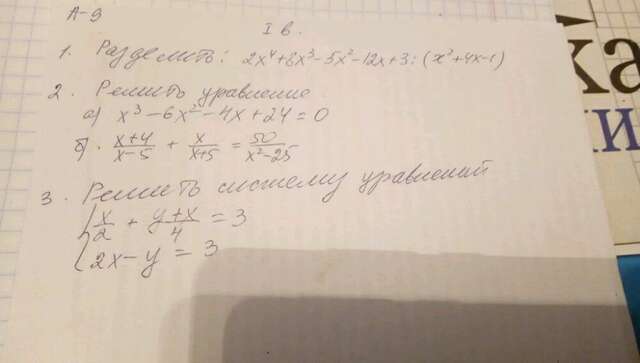 А-9
I в.
1. Разделить: 2x⁴+8x³-5x²-12x+3:(x²+4x-1)
2. Решить уравнение
а) x³-6x²-4x+24=0
б). \frac{x+4}{x-5} + \frac{x}{x+5} = \frac{50}{x²-25}
3. Решить систему уравнений
{ \frac{x}{2} + \frac{y+x}{4} = 3
2x-y=3
ка